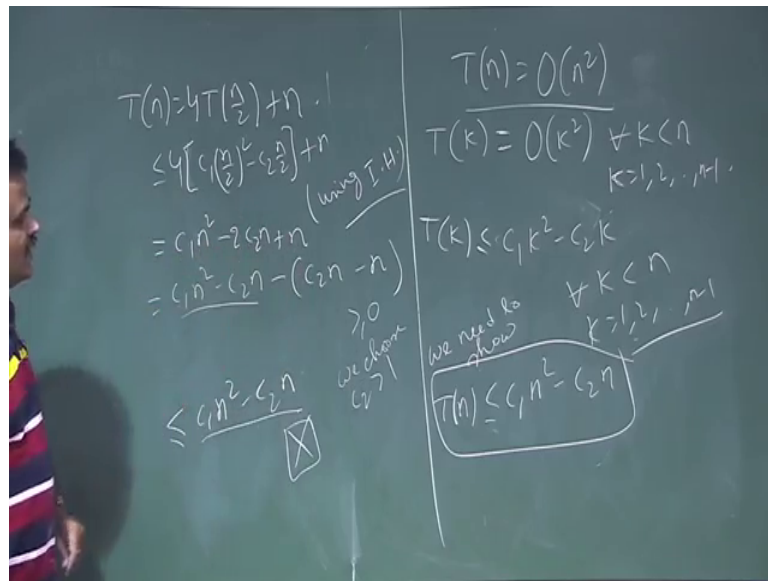 T(n)=4T(n/2)+n.
≤4[c₁(n/2)²-c₂n/2]+n
(using I.H.)
=c₁n²-2c₂n+n
=c₁n²-c₂n-(c₂n-n)
≥0
we choose
c₂>1
≤c₁n²-c₂n
X
T(n)=O(n²)
T(k)=O(k²) ∀k<n
k=1,2,..,n-1.
T(k)≤c₁k²-c₂k
∀k<n
k=1,2,..,n-1
we need to
show
T(n)≤c₁n²-c₂n